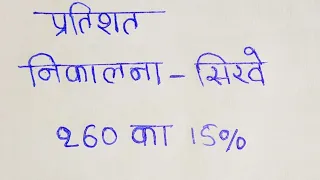 प्रतिशत
निकालना - सिखे
260 का 15%